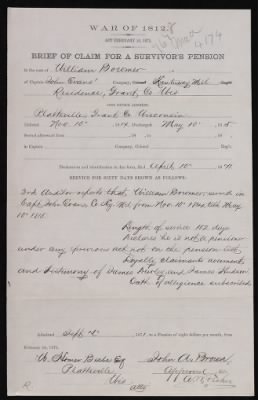 WAR OF 1812.
ACT FEBRUARY 14, 1871.
BRIEF OF CLAIM FOR A SURVIVOR'S PENSION
In the case of William Boremer
of Captain John Evans' Company, Kentucky Mil
Residence, Grant, Co Wis
POST OFFICE ADDRESS:
Platteville, Grant Co. Wisconsin
Nov. 10 1814 Discharged May 10 1815
Declaration and identification in due form, filed April 10 1871
SERVICE FOR SIXTY DAYS SHOWN AS FOLLOWS:
3rd Auditor reports that William Boremer served in
Capt. John Evans Co Ky. Mil from Nov. 10 1814 till May
10th 1815.
Length of service 182 days
Declares he is not a pensioner
under any previous act not on the pension list
Loyalty claimants averments
and testimony of James and James
Oath of allegiance subscribed
Admitted Sept 4 1871 to a Pension of eight dollars per month, from
February 14, 1871.
Homer Beebe Esq
Platteville
Wis
atty
John A.
Approved